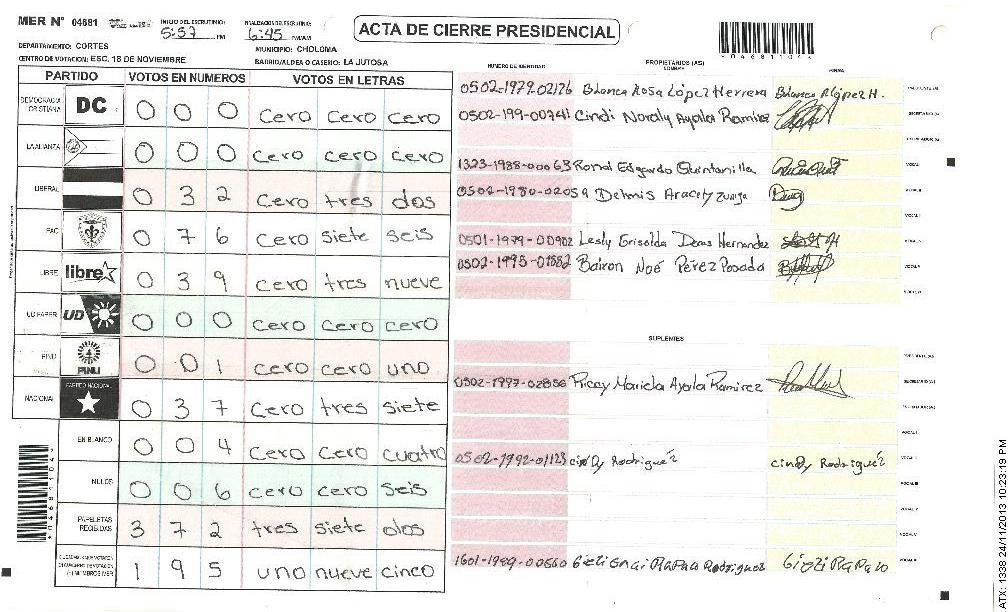 MER N° 04681
INICIO DEL ESCRUTINIO: 5:57 PM
FINALIZACION DEL ESCRUTINIO: 6:45 PM/AM
ACTA DE CIERRE PRESIDENCIAL
DEPARTAMENTO: CORTES
MUNICIPIO: CHOLOMA
CENTRO DE VOTACION: ESC. 18 DE NOVIEMBRE
BARRIO/ALDEA O CASERIO: LA JUTOSA
PARTIDO VOTOS EN NUMEROS VOTOS EN LETRAS
DEMOCRACIA CRISTIANA DC 0 0 0 cero cero cero
LA ALIANZA 0 0 0 cero cero cero
LIBERAL 0 3 2 cero tres dos
PAC 0 7 6 cero siete seis
LIBRE libre 0 3 9 cero tres nueve
UD FAPER UD 0 0 0 cero cero cero
PINU PINU 0 0 1 cero cero uno
NACIONAL PARTIDO NACIONAL 0 3 7 cero tres siete
EN BLANCO 0 0 4 cero cero cuatro
NULOS 0 0 6 cero cero seis
PAPELETAS RECIBIDAS 3 7 2 tres siete dos
1 9 5 uno nueve cinco
*04681104*
NUMERO DE IDENTIDAD PROPIETARIOS (AS) NOMBRE FIRMA
0502-1979-02126 Blanca Rosa López Herrera Blanca R López H.
0502-199-00341 Cindi Noraly Ayala Ramirez
1323-1988-00063 Ronal Edgardo Quintanilla
0502-1980-02059 Delmis Aracely Zuniga
0501-1979-00902 Lesly Grisolda Deras Hernandez
0502-1995-01552 Bairon Noé Pérez Posada
SUPLENTES
0502-1997-02856 Ayala Ramirez
0502-1992-01123 cindy Rodriguez cindy Rodriguez
1601-1989-00560 Rodriguez
ATX: 1338 24/11/2013 10:23:19 PM